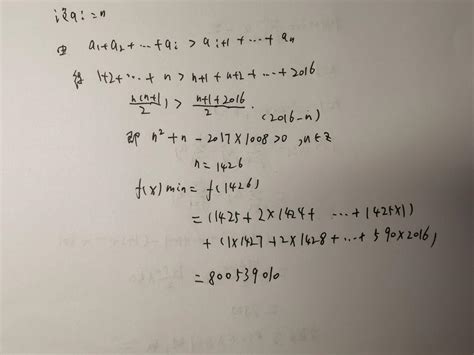 设aᵢ=n
由 a₁+a₂+…+aᵢ > aᵢ₊₁+…+aₙ
得 1+2+…+n > n+1+n+2+…+2016
n(n+1)/2 > (n+1+2016)/2 · (2016-n)
即 n²+n-2017×1008>0, n∈Z
n=1426
f(x)min=f(1426)
=(1425+2×1424+ … +1425×1)
+(1×1427+2×1428+…+590×2016)
=800539010